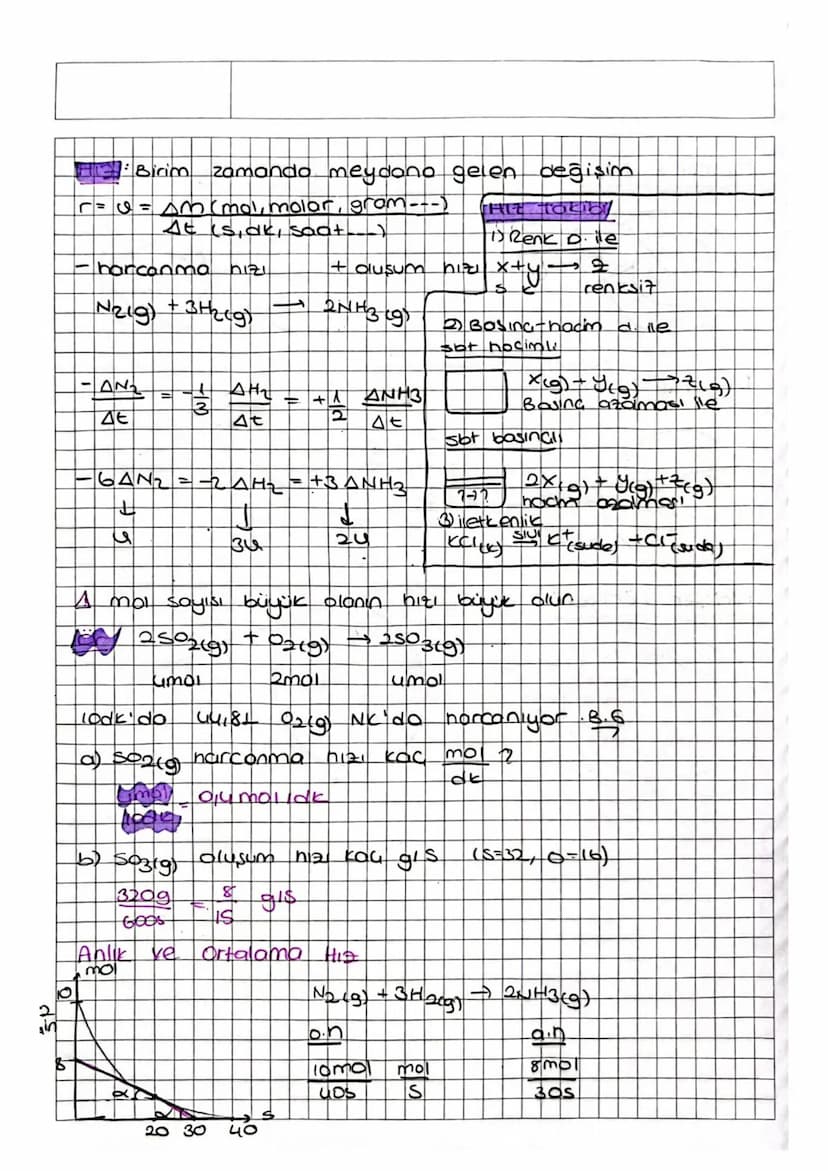 Hız: Birim zamanda meydana gelen değişim
r = v = Δm (mol, molar, gram---)
Δt (s, dk, saat---)
- harcanma hızı + oluşum hızı
N2(g) + 3H2(g) → 2NH3(g)
-ΔN2/Δt = -1/3 ΔH2/Δt = +1/2 ΔNH3/Δt
-6ΔN2 = -2ΔH2 = +3ΔNH3
↓ ↓ ↓
4 34 24
Hız Takibi
1) Renk D. ile
x+y → z
s renksiz
2) Basınç-hacim d. ile
sbt hacimli
X(g) + Y(g) → Z(g)
Basınç azalması ile
sbt basınçlı
2X(g) + Y(g) → Z(g)
hacim azalması
③ iletkenlik
KCl(k) sıvı K+(suda) + Cl-(suda)
Δ mol sayısı büyük olanın hızı büyük olur
2SO2(g) + O2(g) → 2SO3(g)
4mol 2mol 4mol
10dk'da 44,8L O2(g) NK'da harcanıyor. B.G
a) SO2(g) harcanma hızı kaç mol/dk ?
4mol/10dk = 0,4 mol/dk
b) SO3(g) oluşum hızı kaç g/s (S=32, O=16)
320g/600s = 8/15 g/s
Anlık ve Ortalama Hız
mol
10
8
α
α
20 30 40 s
N2(g) + 3H2(g) → 2NH3(g)
o.h a.h
10mol/40s mol/s 8mol/30s